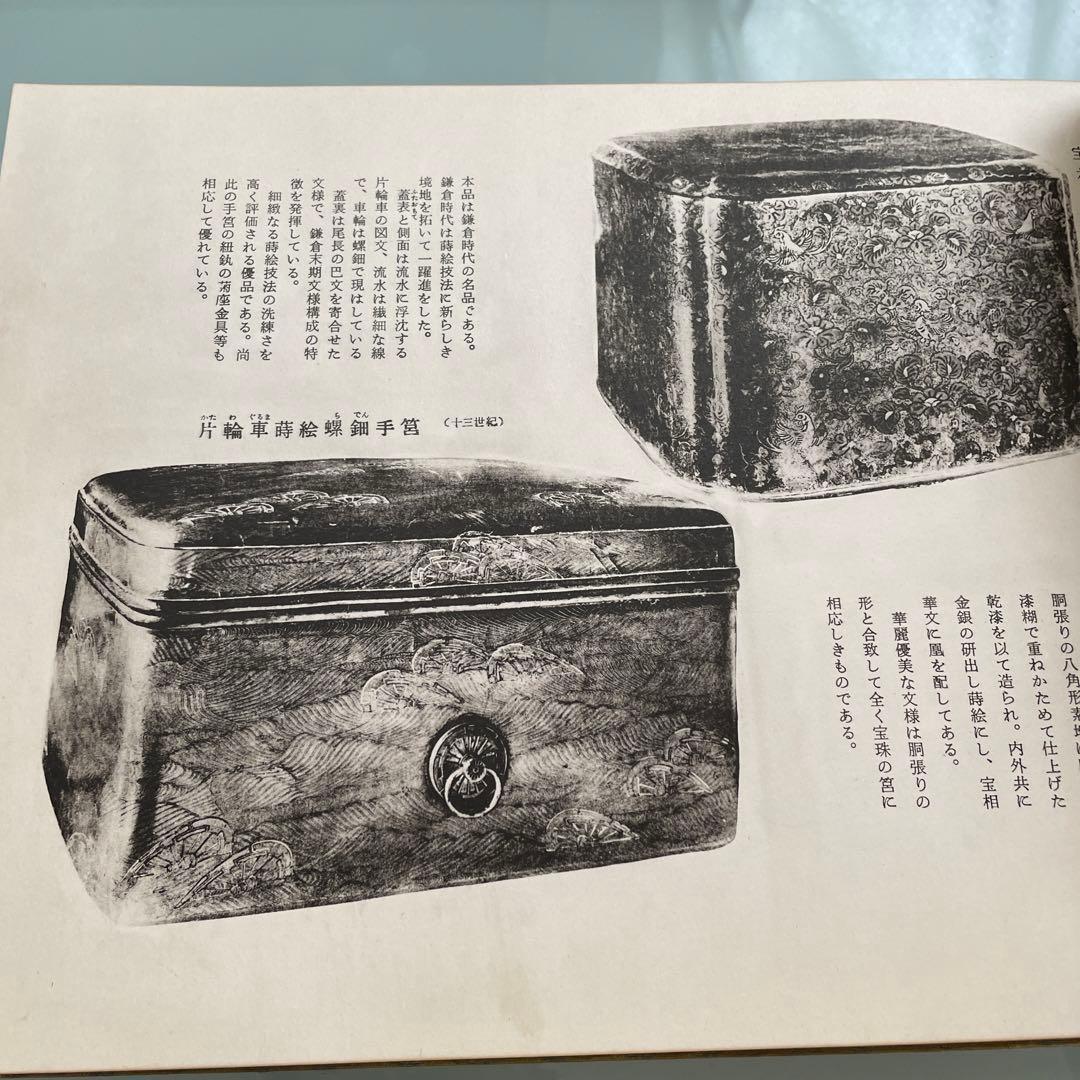 胴張りの八角形素地に
漆糊で重ねかためて仕上げた
乾漆を以て造られ。内外共に
金銀の研出し蒔絵にし、宝相
華文に凰を配してある。
華麗優美な文様は胴張りの
形と合致して全く宝珠の筥に
相応しきものである。
片輪車蒔絵螺鈿手筥 (十三世紀)
かた わ ぐるま ら でん
本品は鎌倉時代の名品である。
鎌倉時代は蒔絵技法に新らしき
境地を拓いて一躍進をした。
蓋表と側面は流水に浮沈する
ふたおもて
片輪車の図文、流水は繊細な線
で、車輪は螺鈿で現はしている
蓋裏は尾長の巴文を寄合せた
文様で、鎌倉末期文様構成の特
徴を発揮している。
細緻なる蒔絵技法の洗練さを
高く評価される優品である。尚
此の手筥の紐釻の菊座金具等も
相応して優れている。